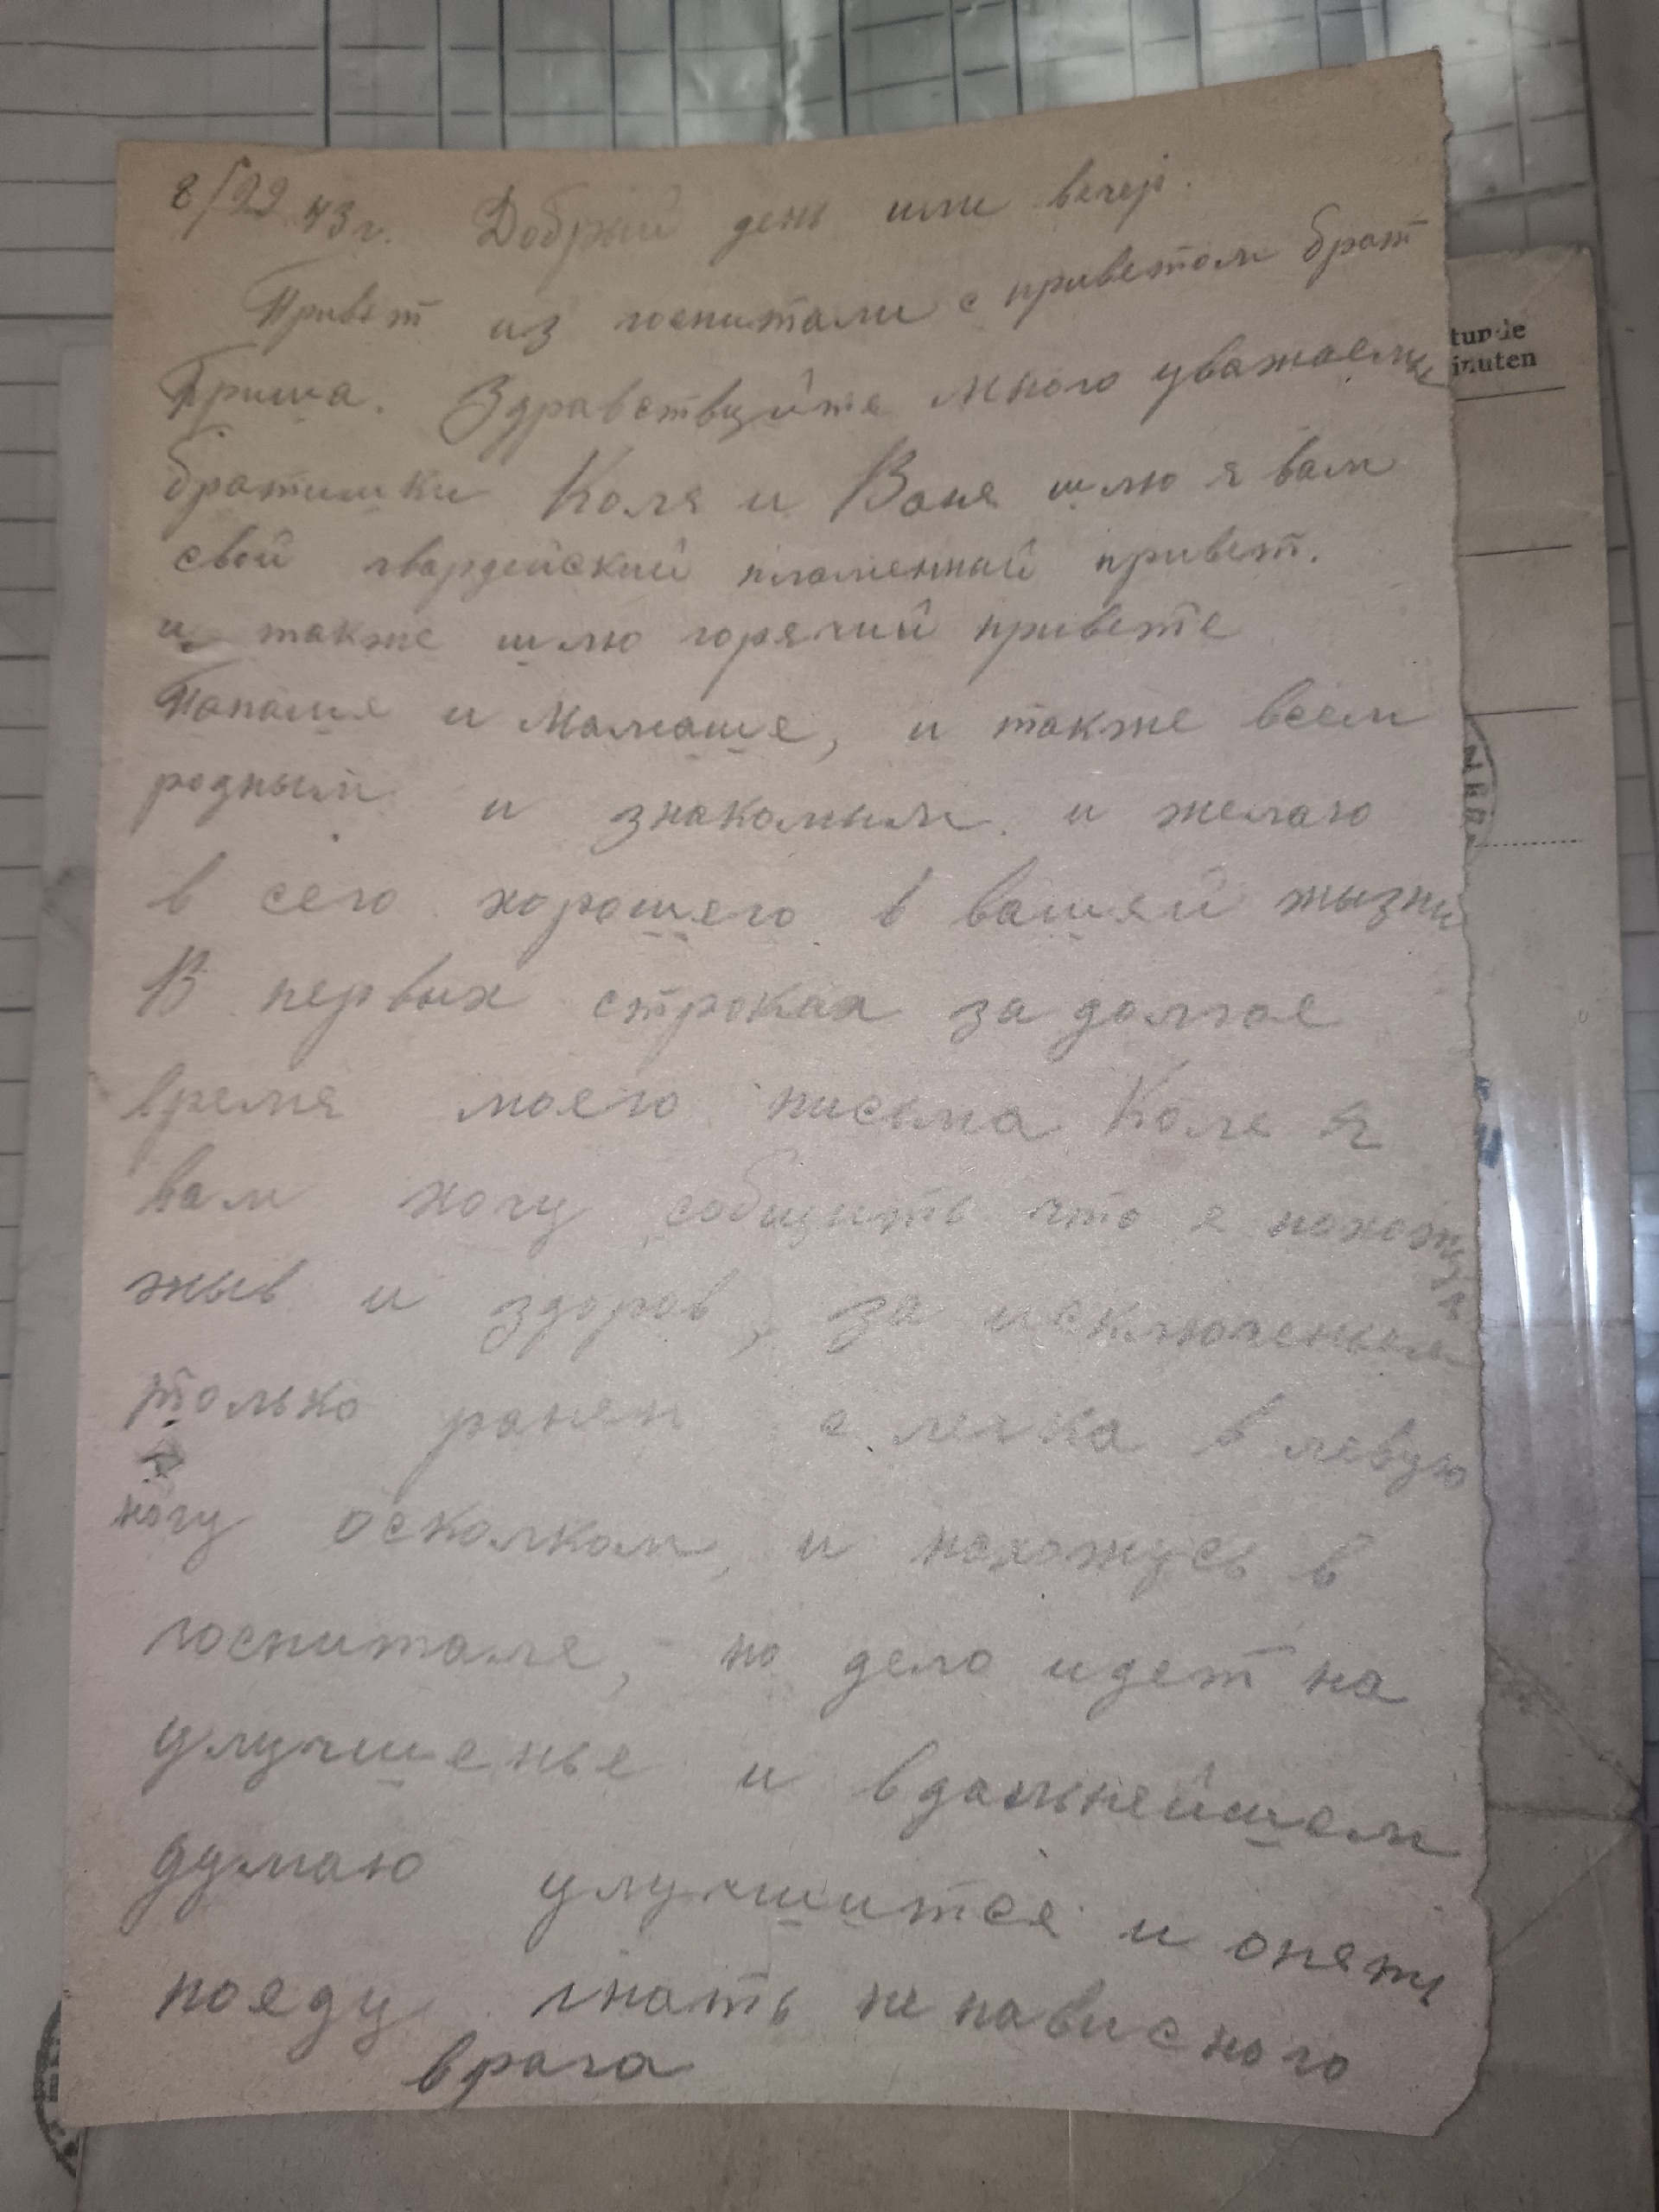 8/22 43 г. Добрый день или вечер.
Привет из госпитали с приветом брат
Гриша. Здравствуйте много уважаемые
братишки Коля и Ваня шлю я вам
свой гвардейский пламенный привет.
и также шлю горячий привете
Папаше и Мамаше, и также всем
родным и знакомым. и желаю
в сего хорошего в вашей жызни
В первых строках за долгое
время моего письма Коле я
вам хочу собщить что я нахожуся
жыв и здоров, за исключеньем
только ранен с легка в левую
ногу осколком, и нахожусь в
госпитале, но дело идет на
улучшенье и вдальнейшем
думаю улучшится и опять
поеду гнать не нависного
врага
tunde
inuten